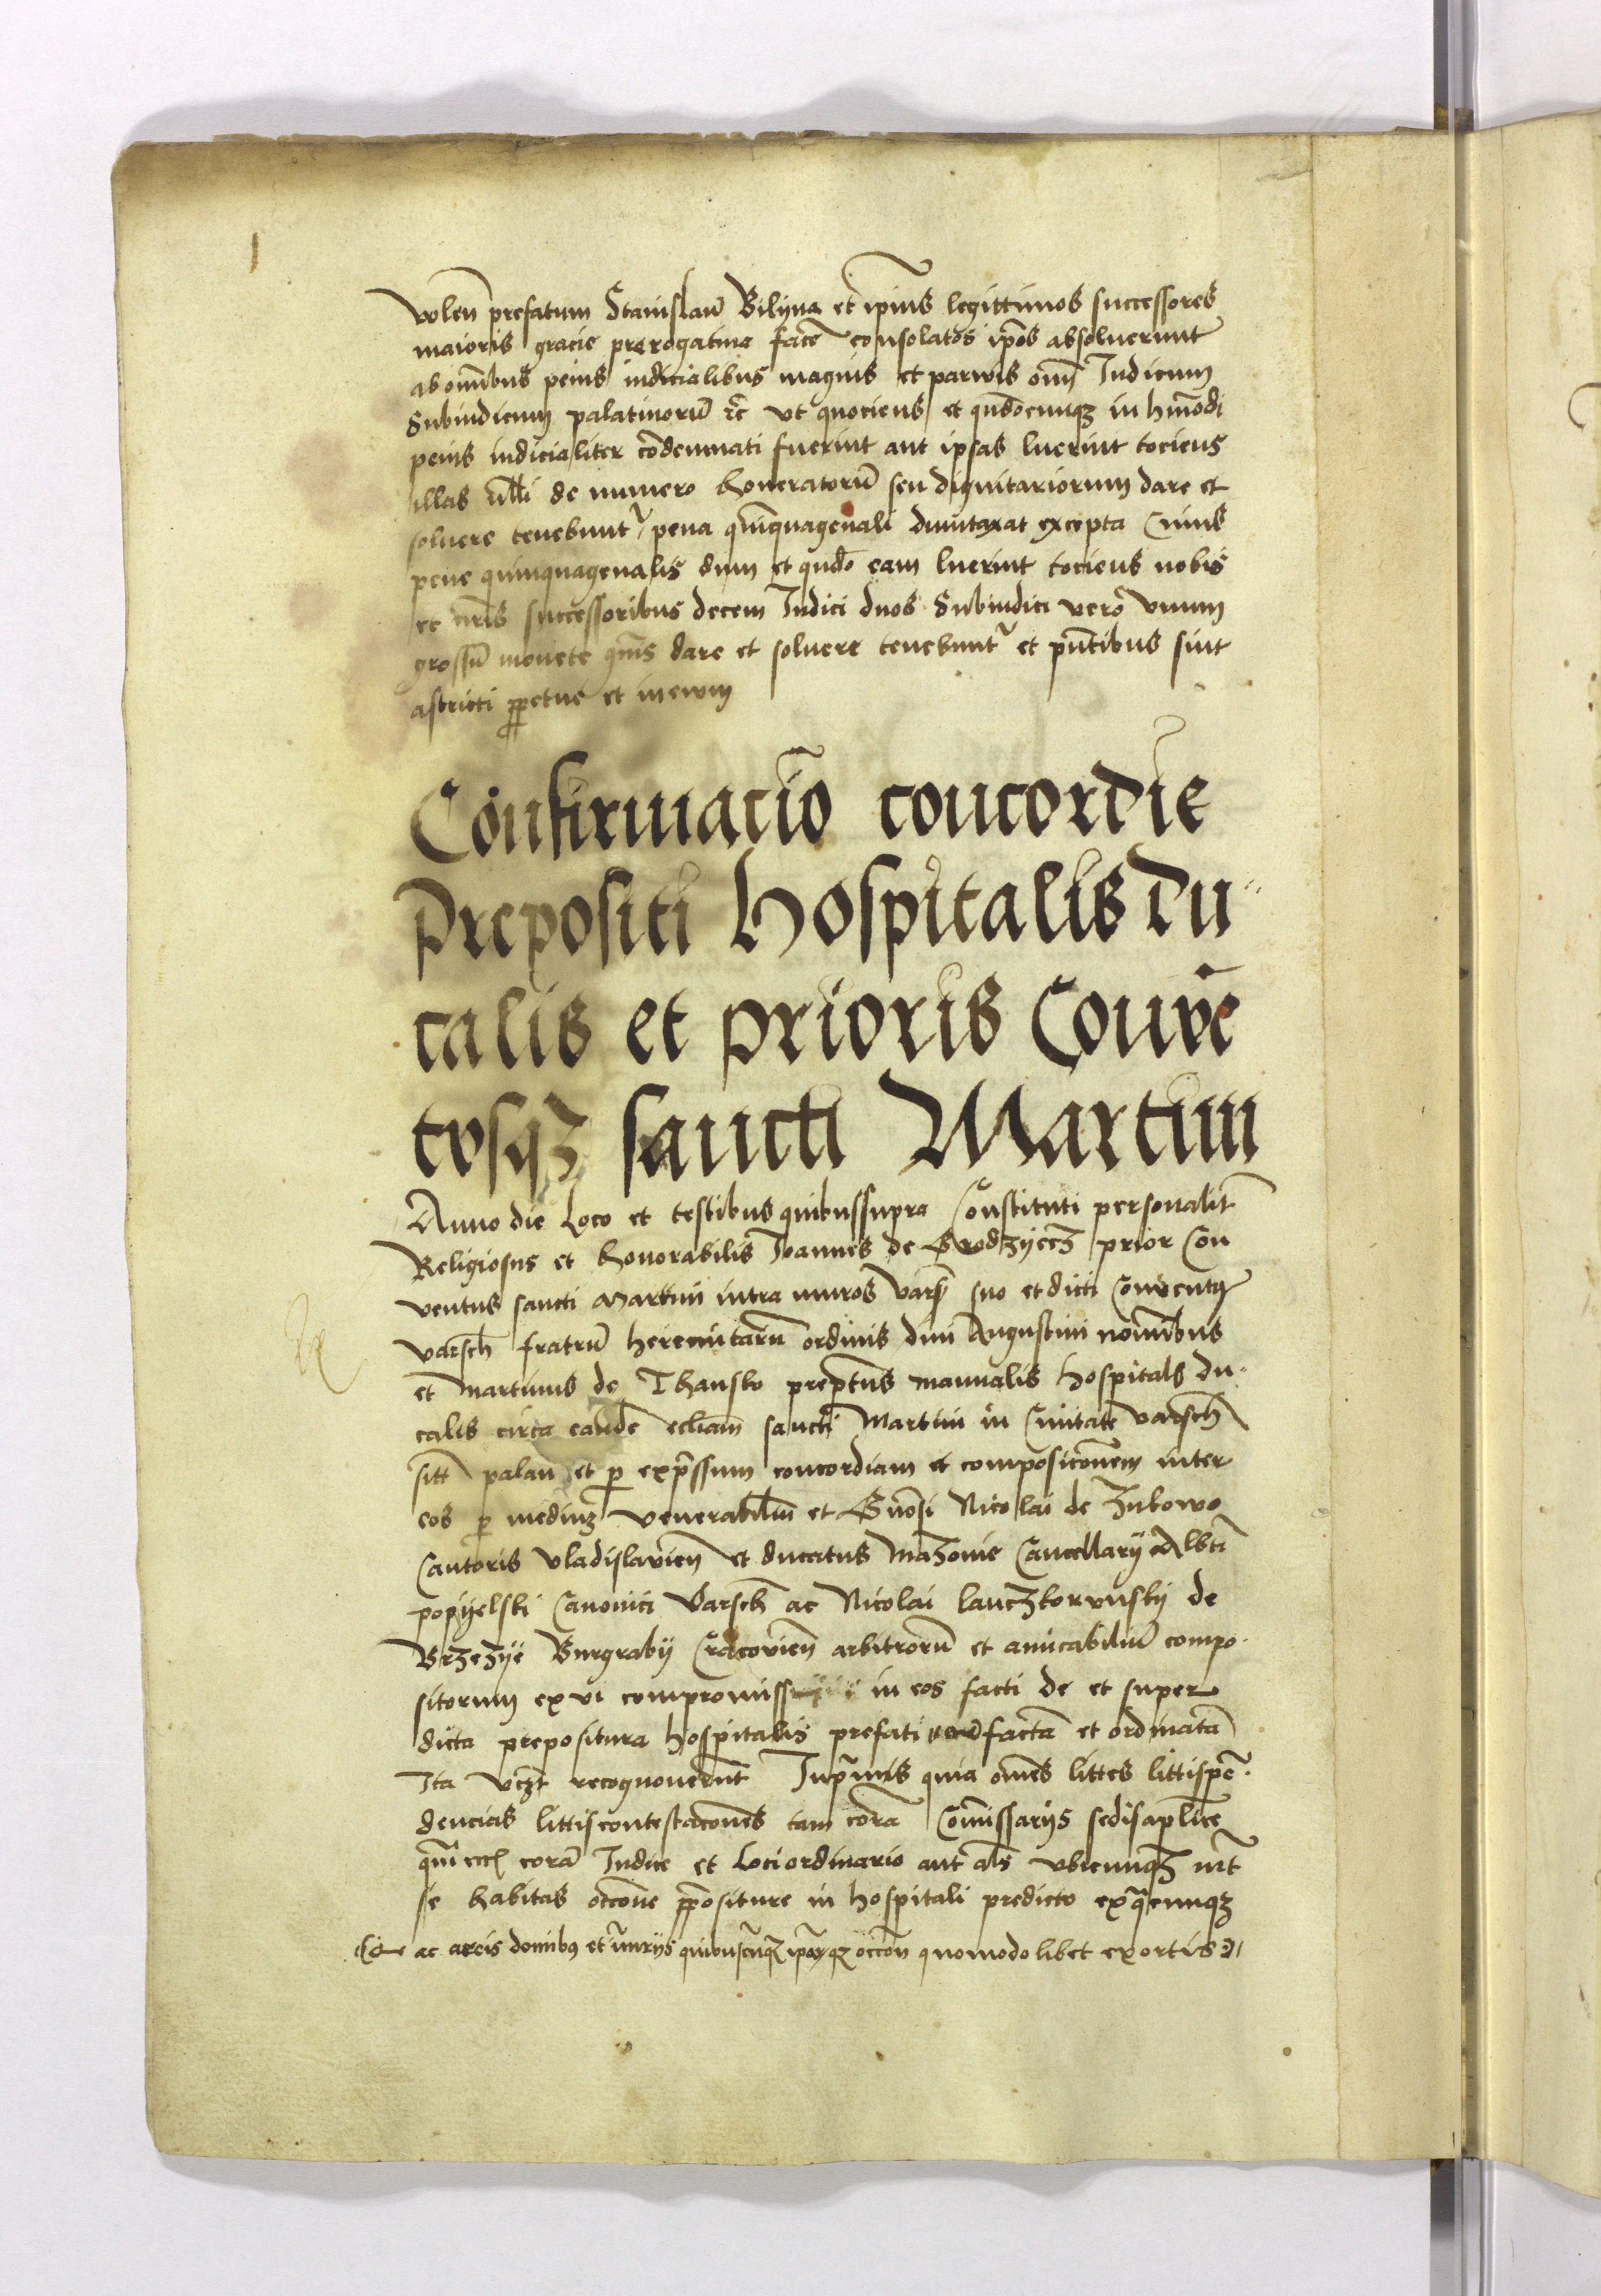 volen̄ prefatum Stanislaū Bilyna et ip̄ius legittimos successores
maioris gracie prerogatiua facē consolatos ip̄os absoluerunt
ab om̄ibus penis iudicialibus magnis et parwis om̄ Iudicum
Subiudicum palatinorū rc̄ vt quociens et qn̄documqꝫ in hm̄odi
penis iudicialiter cōdemnati fuerint aut ipsas luerint tociens
illas nl̄li de numero honeratorū seu dignitariorum dare et
soluere tenebunt᷑ pena quīquagenali dumtaxat excepta Cuius
pene quinquagenalis dum et qn̄do eam luerint tociens nobis
et nr̄is successoribus decem Iudici duos Subiudici vero vnum
grossū monete qm̄s dare et soluere tenebunt᷑ et pn̄tibus sint
astricti ꝑpetue et inewm
Confirmaciō concordie
prepositi hospitalis du
calis et prioris Conuē
tvsqꝫ sancti Martini
Anno die Loco et testibus quibussupra Constituti personalit᷑
Religiosus et honorabilis Joannes de Grodzyecz prior Con
ventus sancti Martini intra muros Vars̄ suo et dicti Conventꝰ
varsch̄ fratrū heremitarū ordinis diui Augustini noīnibus
et Martinus de Thansko prep̄tus manualis hospitals du
calis circa eandē ecl̄iam sancti Martini in Ciuitate varsch̄
sitt̄ palam et ꝑ exp̄ssum concordiam et composicōnem inter
eos ꝑ mediū venerabiliū et Gn̄osi Nicolai de Zukowo
Cantoris vladislavien̄ et ducatus Mazouie Cancellarij Alb̄ti
popyelski Canonici Varsch̄ ac Nicolai lanczkorunsky de
Brzezye Burgrabij Cracovien̄ arbitrorū et amicabiliū compo
sitorum ex vi compromiss in eos facti de et super
dicta prepositura hospitalis prefati factā et ordinatā
Ita vcz̄t recognouerūt Inp̄mis quia om̄es littes littispē
dencias littiscontestacōnes tam corā Com̄issarijs sedis apl̄ice
qm̄ ecc̄ corā Iudice et Loci ordinario aut al̄s vbicumqꝫ int᷑
se habitas occōne ꝑpositure in hospitali predicto ex qcumqꝫ
ac areis domibꝰ et quibuscūqꝫ occōn̄ quomodolibet exortis